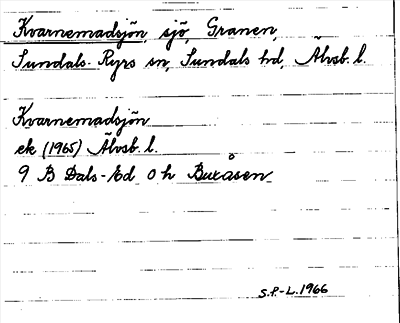 Kvarnemadsjön, sjö, Granen,
Sundals-Ryrs sn, Sundals hd, Älvsb. l.
Kvarnemadsjön
ek (1965) Älvsb. l.
9 B Dals-Ed o h Buråsen
S.P-L. 1966